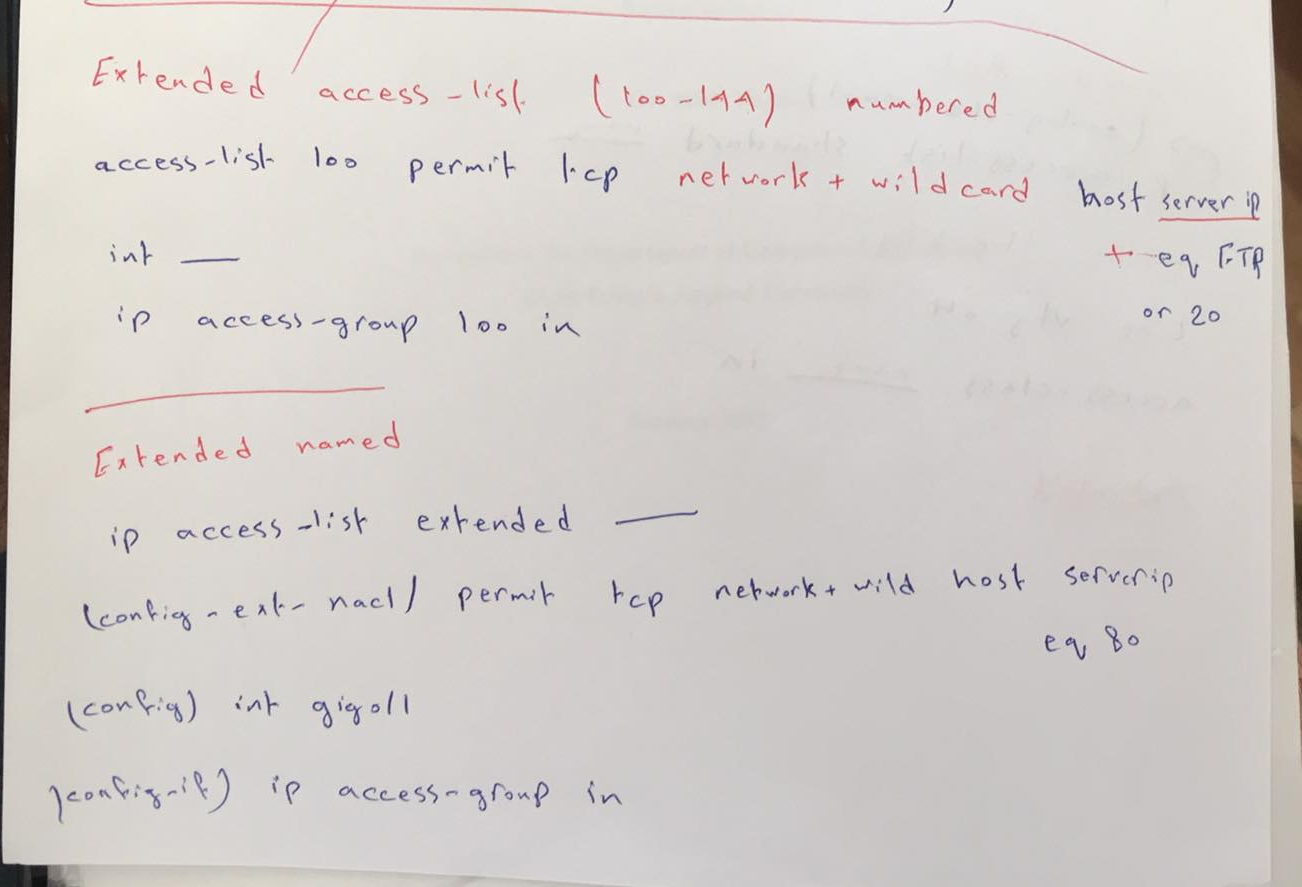 Extended access-list (100-199) numbered
access-list 100 permit tcp network + wild card host server ip
+ eq FTP
or 20
int __
ip access-group 100 in
Extended named
ip access-list extended __
(config-ext-nacl) permit tcp network + wild host serverip
eq 80
(config) int gig0/1
(config-if) ip access-group in